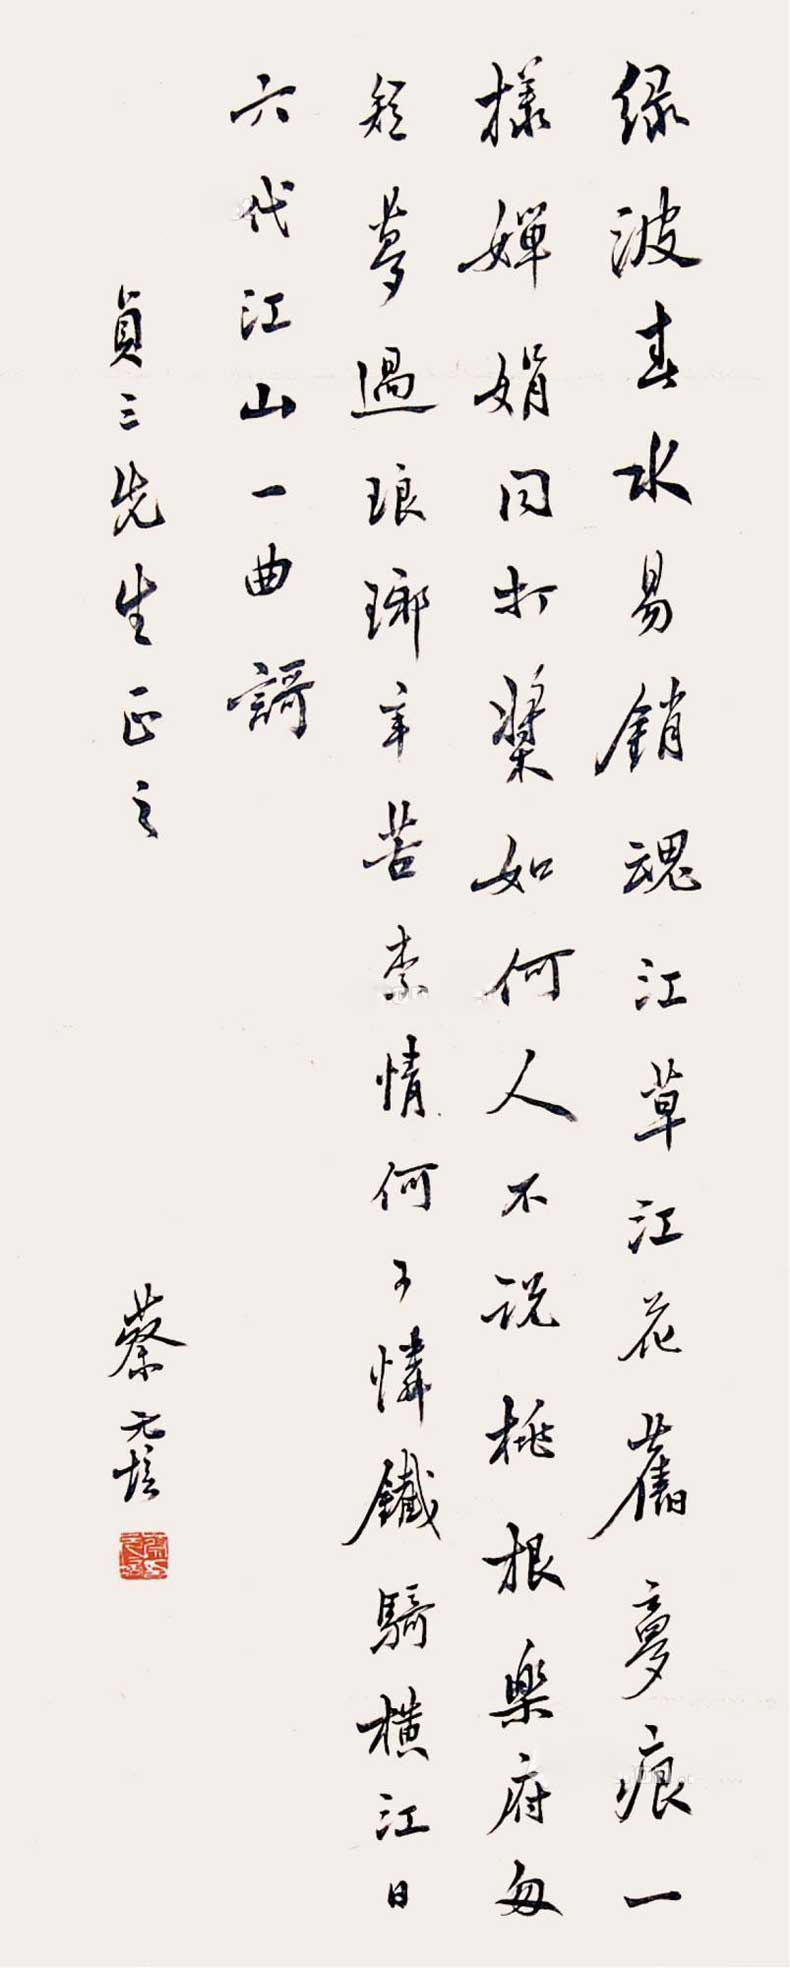 緑波春水易銷魂江草江花舊夢痕一
樣嬋娟同打槳如何人不說桃根樂府匆匆
短夢過琅琊辛苦柰情何可憐鐵騎橫江日
六代江山一曲謌
貞三先生正之
蔡元培